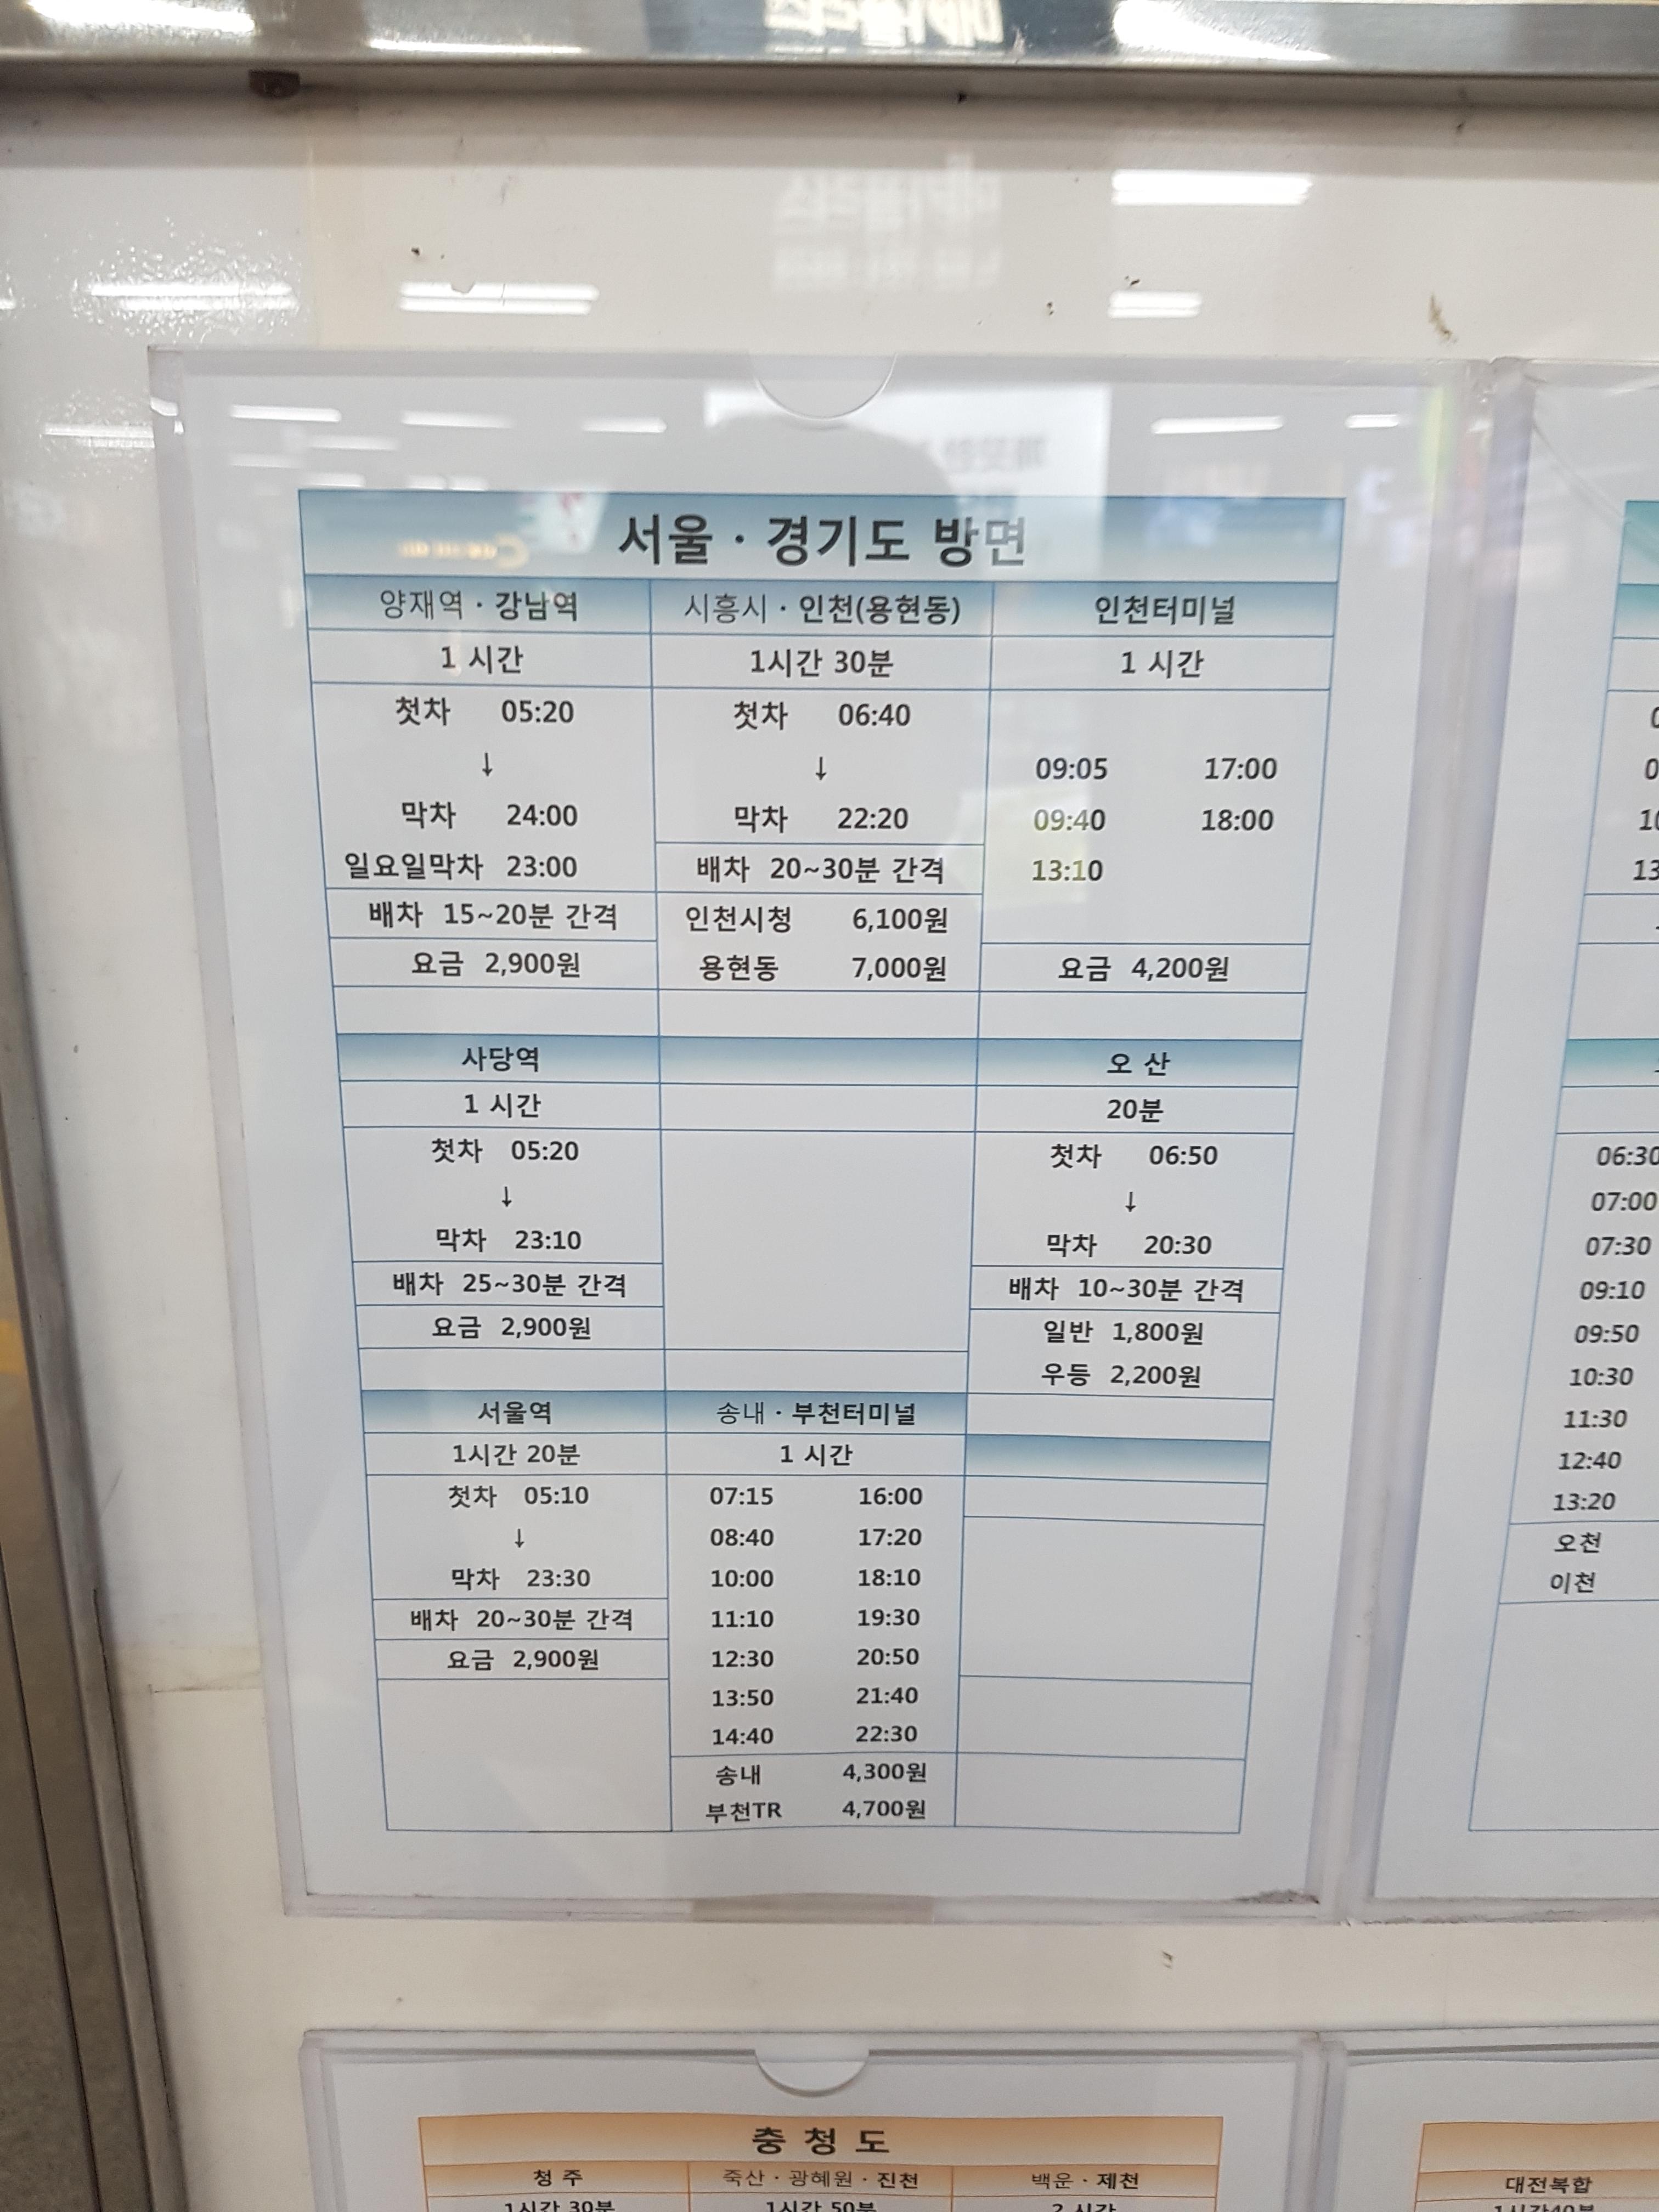 서울 · 경기도 방면
양재역 · 강남역
1 시간
첫차 05:20
↓
막차 24:00
일요일막차 23:00
배차 15~20분 간격
요금 2,900원
시흥시 · 인천(용현동)
1시간 30분
첫차 06:40
↓
막차 22:20
배차 20~30분 간격
인천시청 6,100원
용현동 7,000원
인천터미널
1 시간
09:05 17:00
09:40 18:00
13:10
요금 4,200원
사당역
1 시간
첫차 05:20
↓
막차 23:10
배차 25~30분 간격
요금 2,900원
오 산
20분
첫차 06:50
↓
막차 20:30
배차 10~30분 간격
일반 1,800원
우등 2,200원
서울역
1시간 20분
첫차 05:10
↓
막차 23:30
배차 20~30분 간격
요금 2,900원
송내 · 부천터미널
1 시간
07:15 16:00
08:40 17:20
10:00 18:10
11:10 19:30
12:30 20:50
13:50 21:40
14:40 22:30
송내 4,300원
부천TR 4,700원
06:30
07:00
07:30
09:10
09:50
10:30
11:30
12:40
13:20
오천
이천
충 청 도
청 주
죽산 · 광혜원 · 진천
백운 · 제천
1시간 30분
1시간 50분
2 시간
대전복합